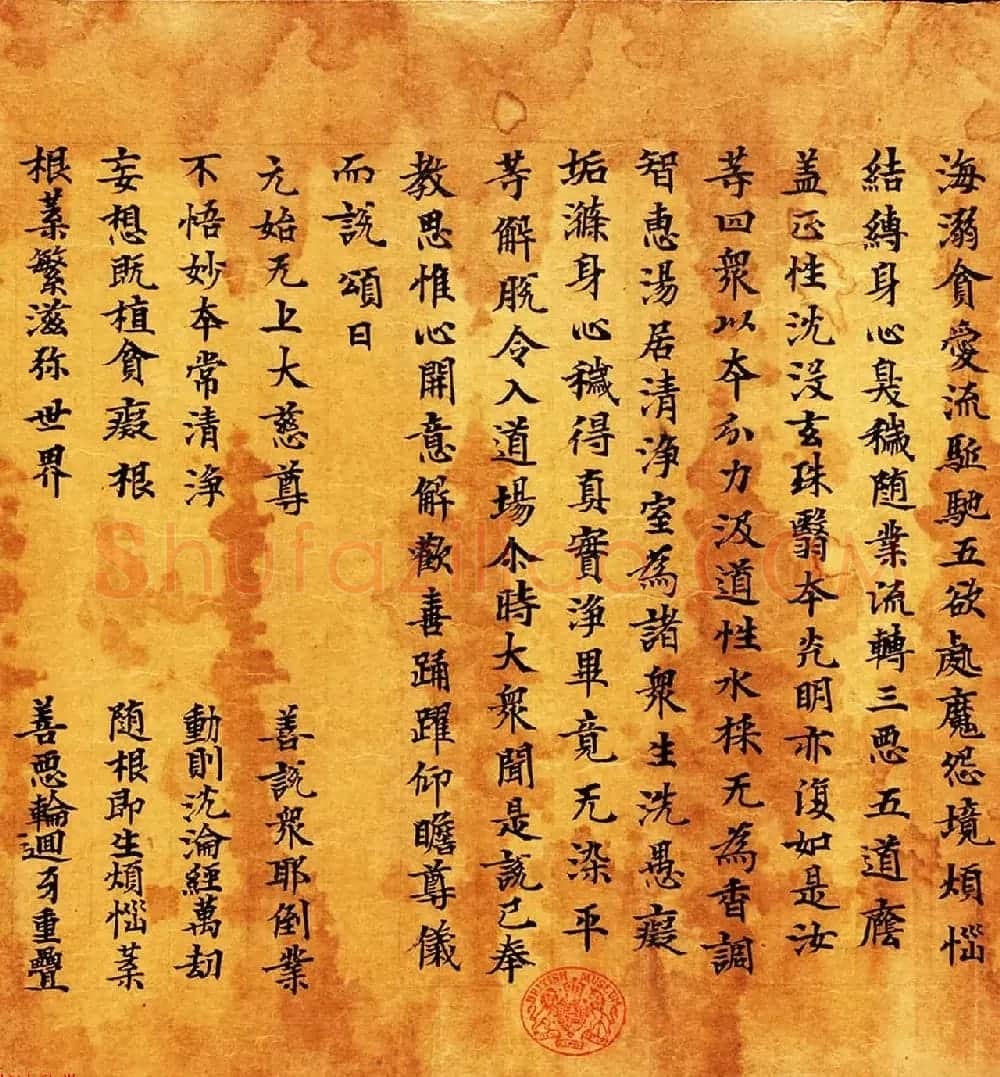 海溺貪愛流駈馳五欲處魔怨境煩惱
結縛身心臭穢随業流轉三惡五道癊
盖正性沈沒玄珠翳本光明亦復如是汝
等四衆以本分力汲道性水採无為香調
智惠湯居清淨室為諸衆生洗愚癡
垢滌身心穢得真實淨畢竟无染平
等解脫令入道場尒時大衆聞是說已奉
教思惟心開意解歡喜踊躍仰瞻尊儀
而說頌曰
元始无上大慈尊 善說衆耶倒業
不悟妙本常清淨 動則沈淪經萬劫
妄想既植貪癡根 随根即生煩惱葉
根葉繁滋弥世界 善惡輪迴牙重疊
Shufaziliao.com
BRITISH MUSEUM